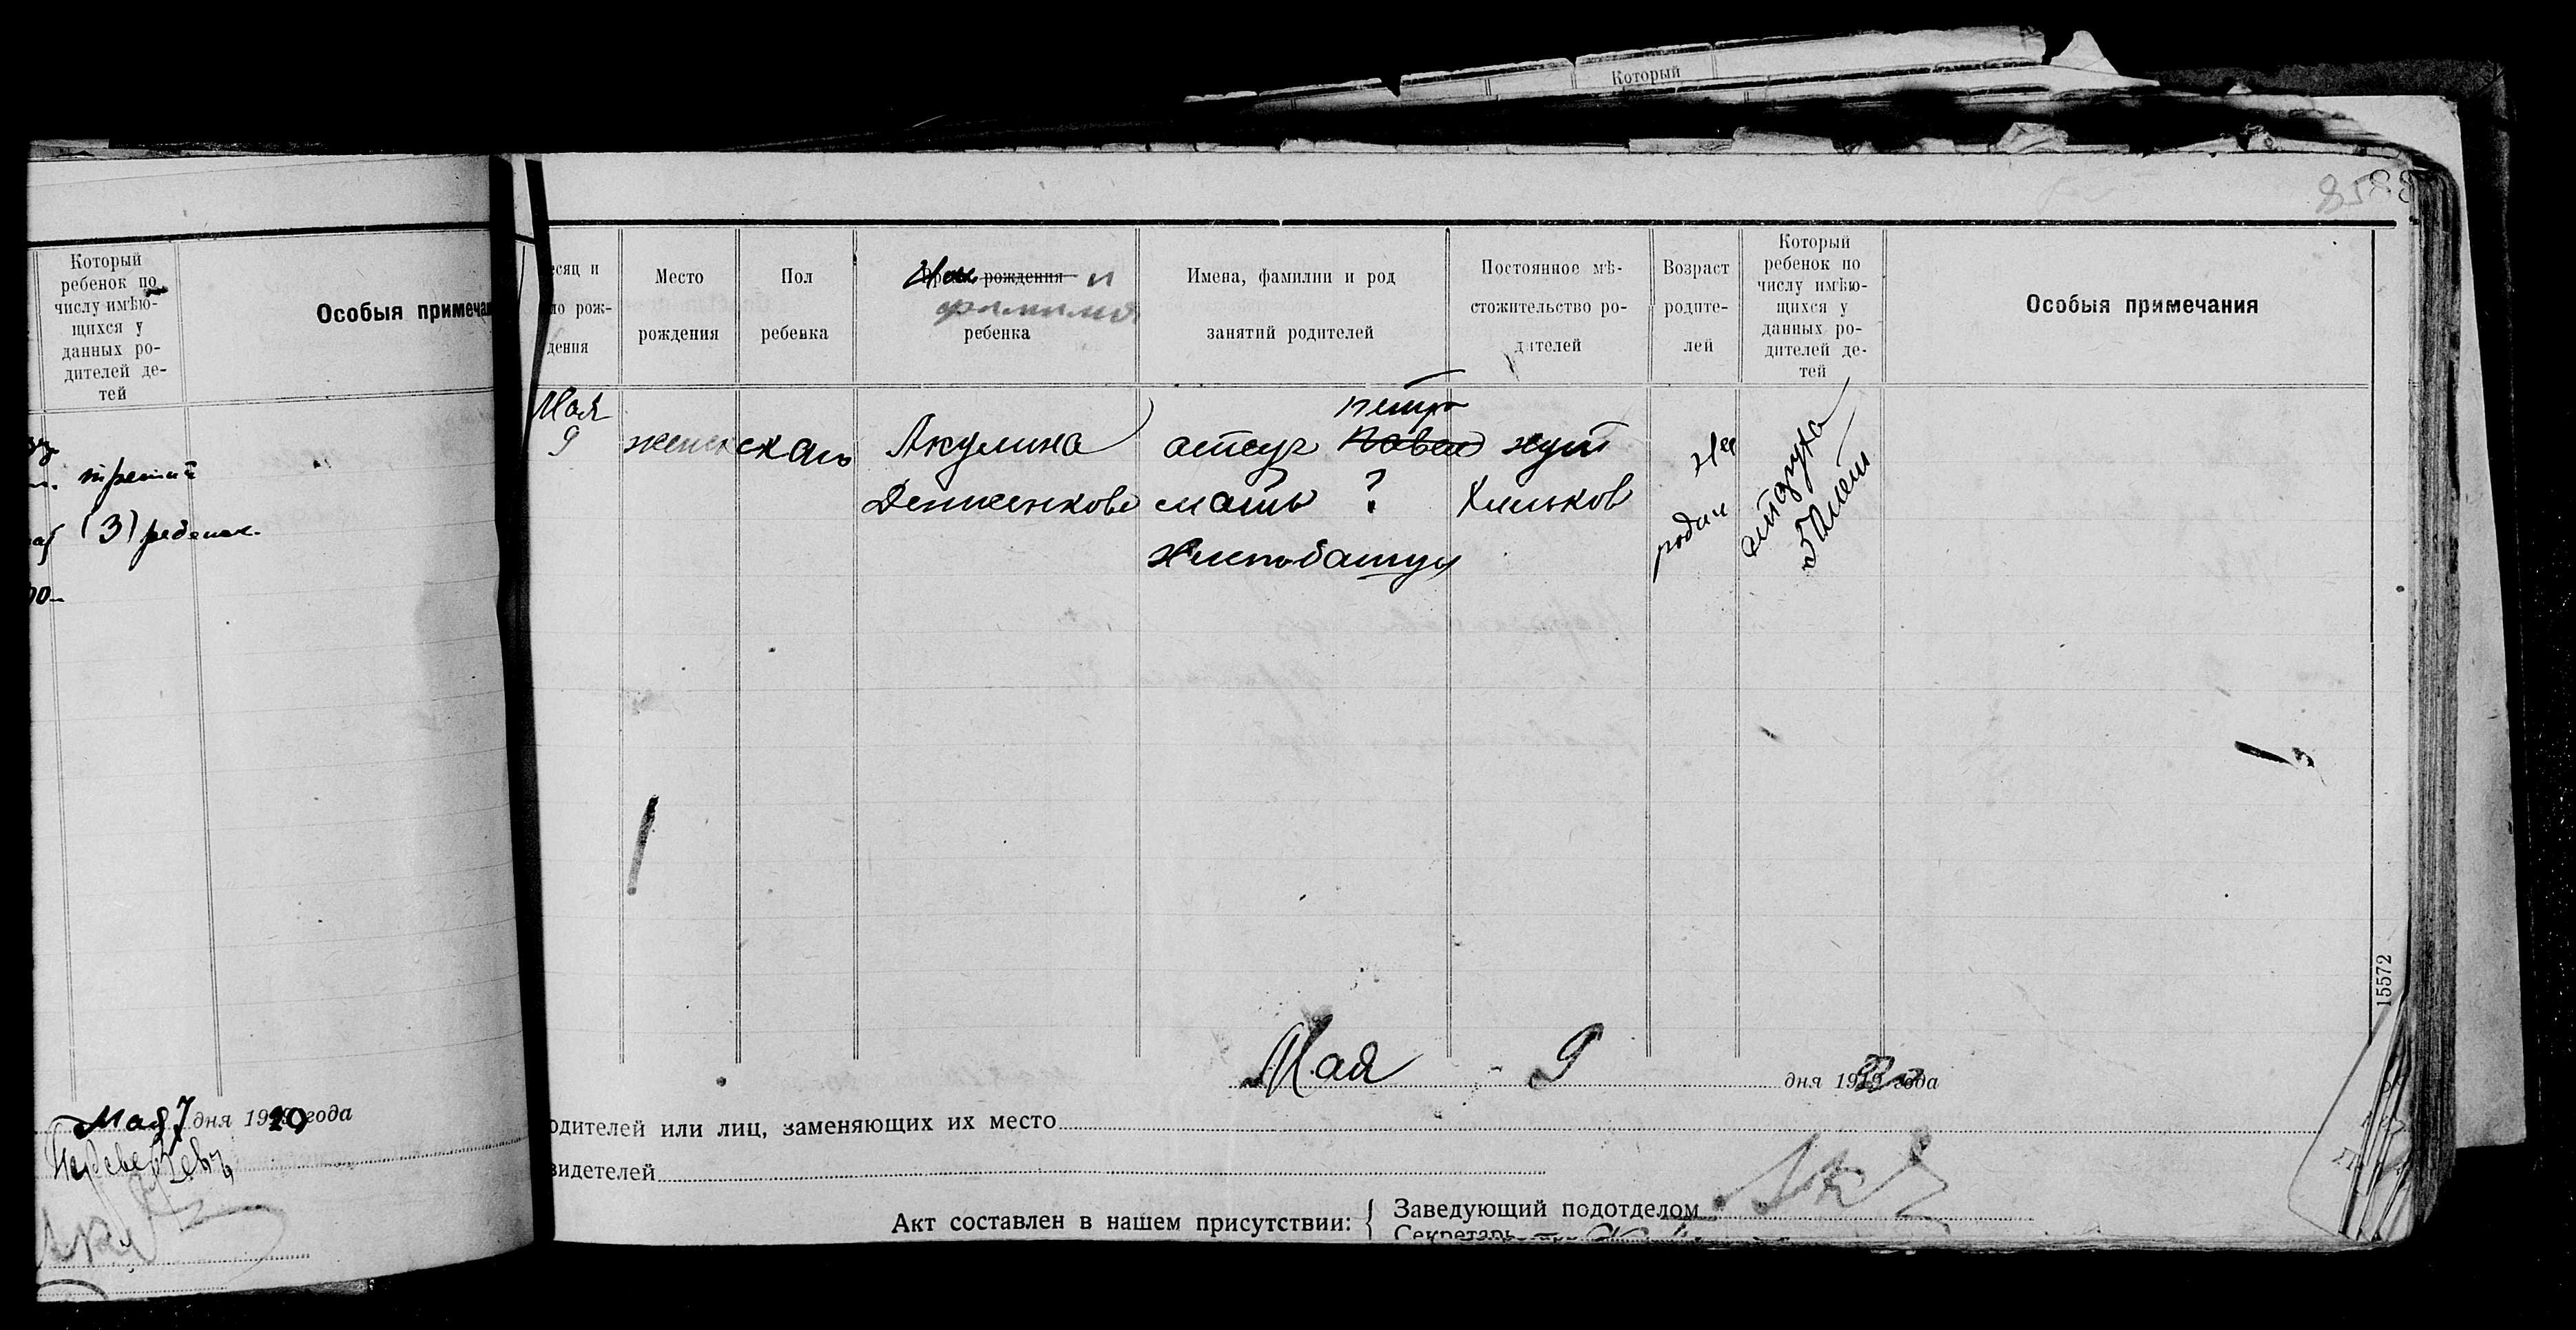 Который
85
Который
ребенок по
числу имѣю-
щихся у
данных ро-
дителей де-
тей
Особыя примеча
третий
(3) ребенок.
Мая 7 дня 1920 года
есяц и
ло рож-
дения
Место
рождения
Пол
ребенка
Имя рождения и
фамилия
ребенка
Имена, фамилии и род
занятий родителей
Постоянное мѣ-
стожительство ро-
дителей
Возраст
родите-
лей
Который
ребенок по
числу имѣю-
щихся у
данных ро-
дителей де-
тей
Особыя примечания
Мая
9
женск ская
Акулина
отец Петр Павел хут
мать ? Хильков
старуха
15572
Мая 9 дня 19 года
одителей или лиц, заменяющих их место
видетелей
Акт составлен в нашем присутствии:
Заведующий подотделом
Секретарь